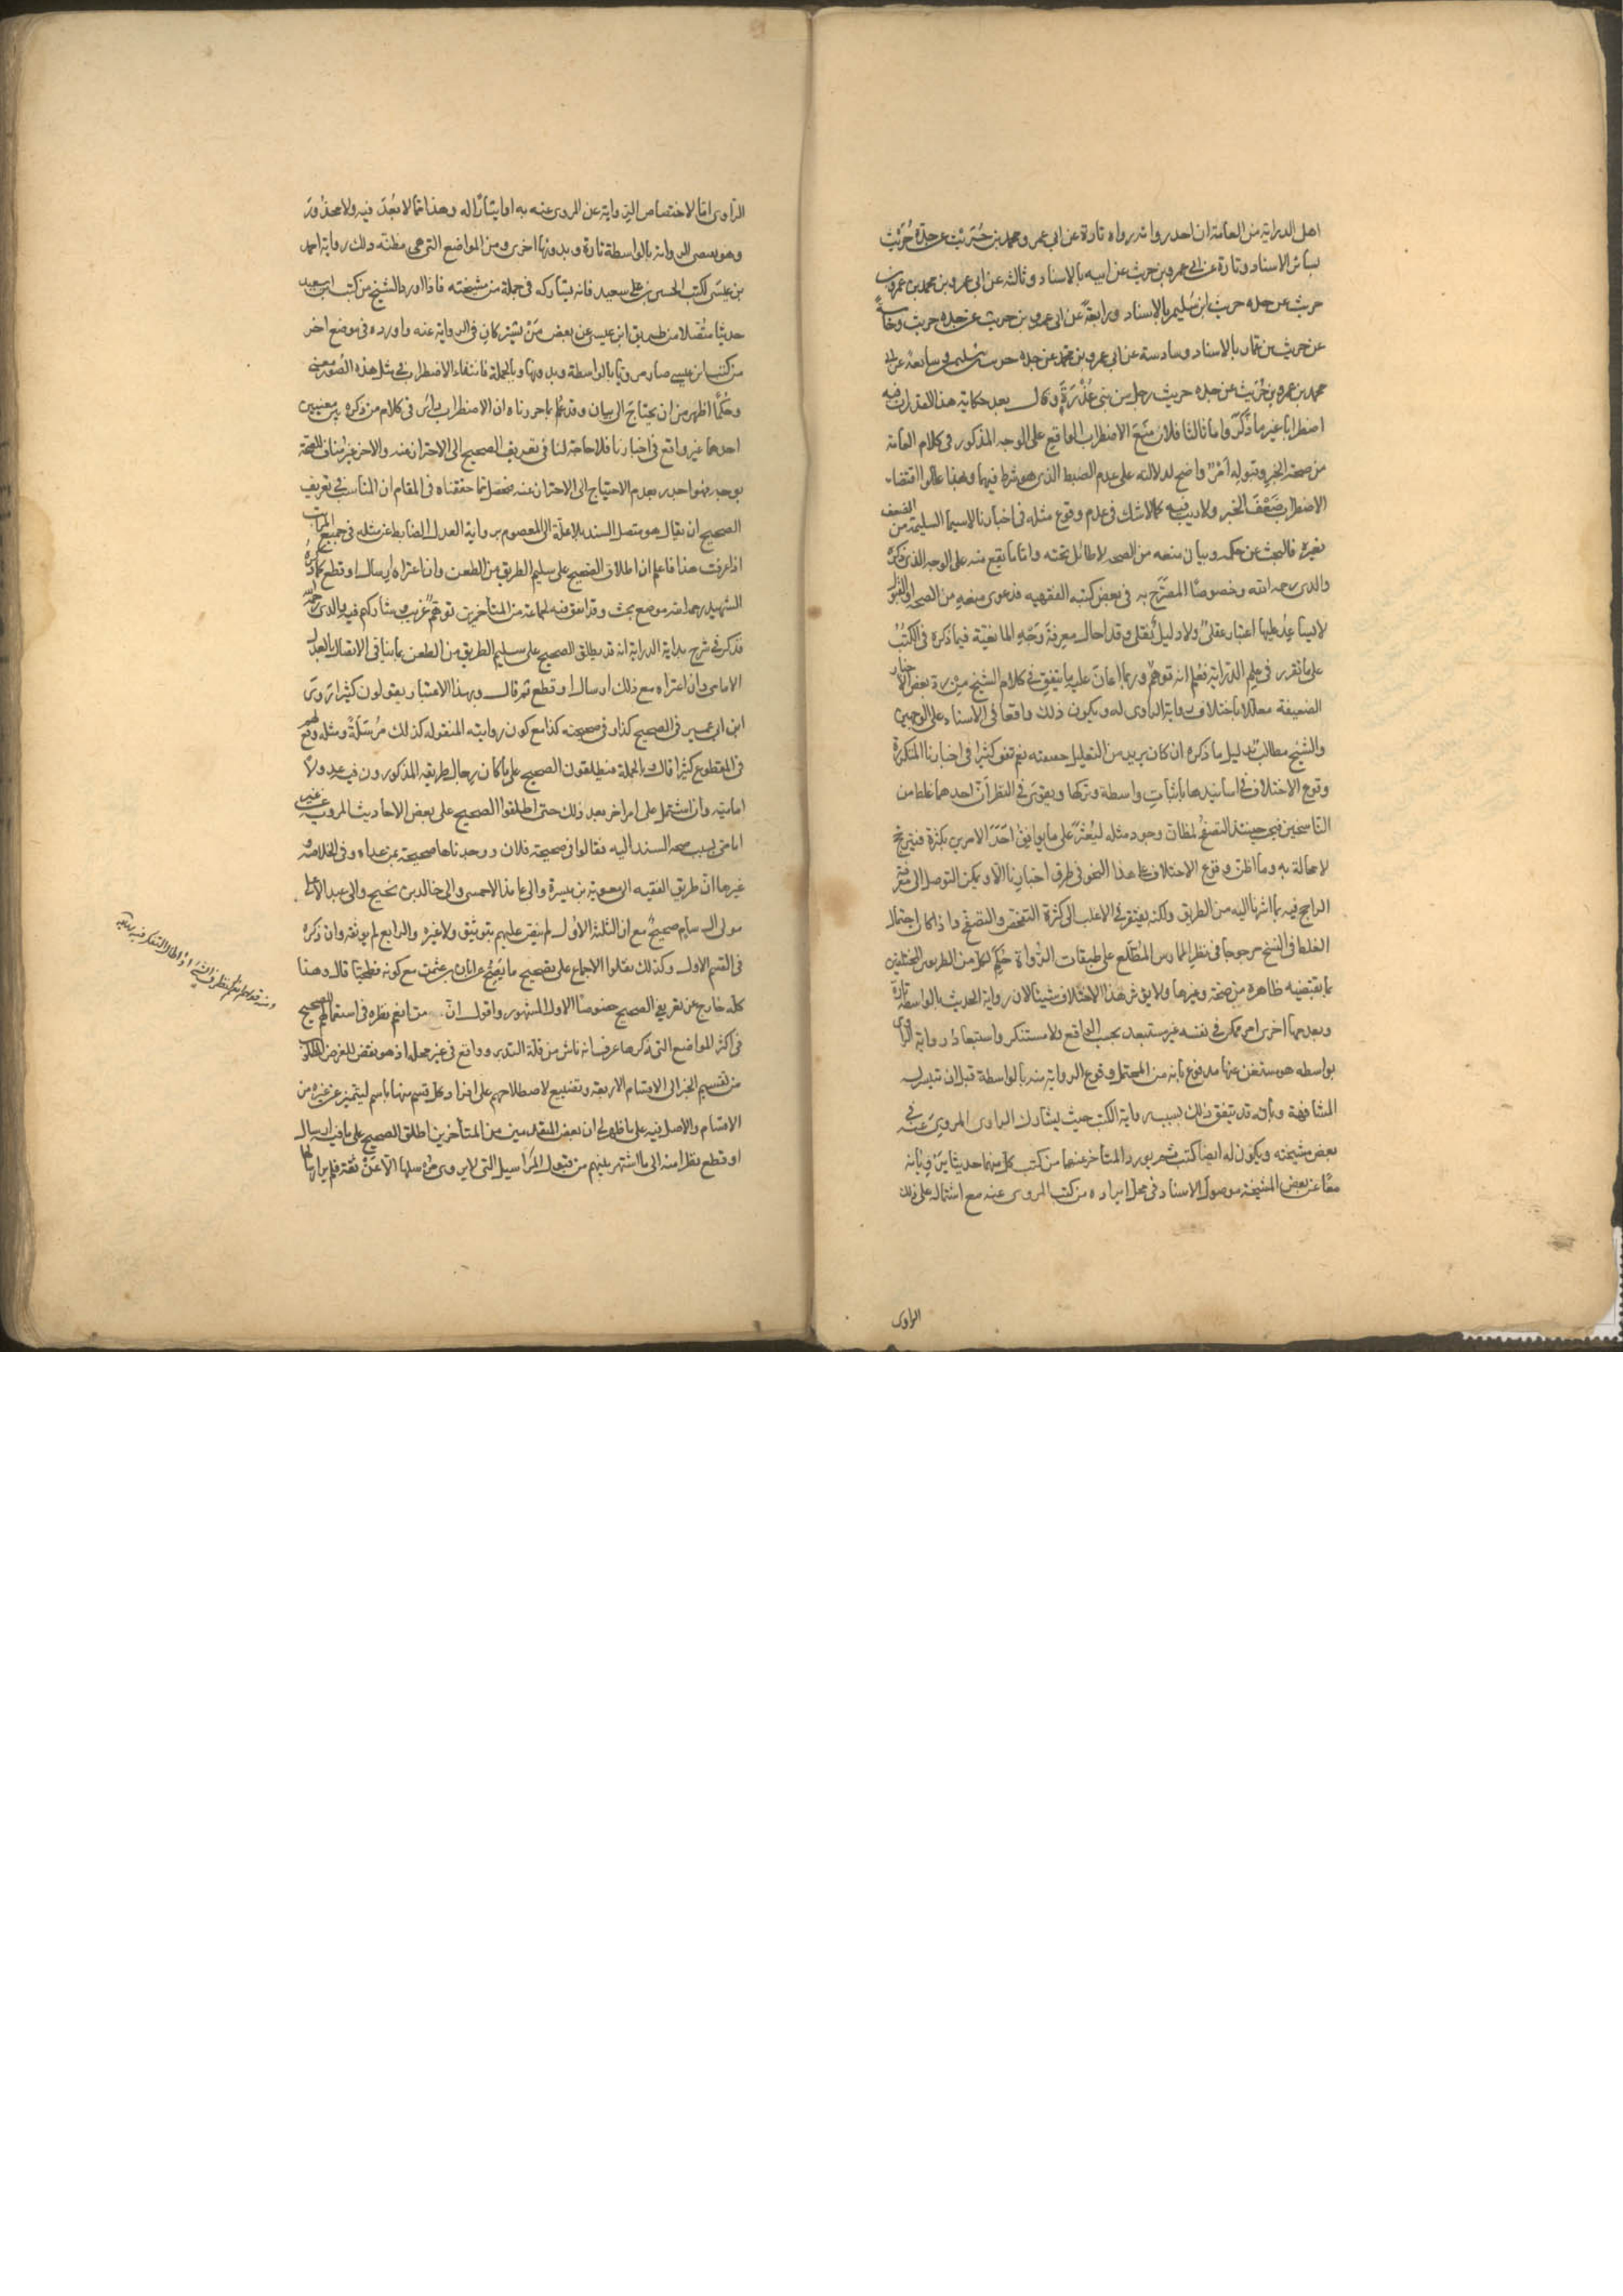 اهل الدراية من العامة ان احد رواته رواه تارة عن ابي عمرو محمد بن حُرَيث عن جده حُرَيث
بسائر الاسناد وتارة عن ابي عمرو بن حريث عن ابيه بالاسناد وثالثه عن ابي عمرو بن محمد بن عمرو بن
حريث عن جده حريث ابن سُليم بالاسناد ورابعةً عن ابي عمرو بن حريث عن جده حريث وخامسةً
عن حريث بن عمار بالاسناد وسادسة عن ابي عمرو بن محمد عن جده حريث بن سليم وسابعة عن ابي
محمد بن عمرو بن حُرَيث عن جده حريث رجل من بني عُذْرَةَ وقال بعد حكاية هذا القدر ان فيه
اضطرابا غير ما ذُكِرَ واما ثالثا فلان مَنَعَ الاضطراب الواقع على الوجه المذكور في كلام العامة
من صحة الخبر وقبوله امرٌ واضح لدلالته على عدم الضبط الذي هو شرط فيهما وبهذا عللوا اقتضاء
الاضطراب ضَعْفَ الخبر ولا ريب فيه كما لا شك في عدم وقوع مثله في اخبارنا لا سيما السليمة من الضعف
بغيره فالبحث عن حكمه وبيان منعه من الصحه لا طائل تحته واما ما يقع منه على الوجه الذي ذكره
والدي رحمه الله وخصوصًا المصرّح به في بعض كتبه الفقهيه فدعوى منعه من الصحه او القبول
لا يساعد عليها اعتبار عقليٌ ولا دليلٌ نقلي وقد احال معرفةَ وَجْهِ المانعيّة فيما ذكره في الكُتُب
على ما تقرر في علم الدراية فعُلِمَ انه توهمٌ وربما اعان عليه ما يتفق في كلام الشيخ من رد بعض الاخبار
الضعيفة معللا باختلاف رواية الراوي له ويكون ذلك واقعا في الاسناد على الوجهين
والشيخ مطالب بدليل ما ذكره ان كان يريد من التعليل حقيقته نعم يتفق كثيرا في اخبارنا المتكررة
وقوع الاختلاف في اسانيدها باثبات واسطة وتركها ويقوى في النظر أنّ احدهما غلط من
الناسخين فيجب حينئذ التصفح لمظان وجود مثله ليُعْثَر على ما يوافق احَدَ الامرين بكثرة فيترجح
لا محالة به وما اظن وقوع الاختلاف على هذا النحو في طرق اخبارنا الا ويمكن التوصل الى معرفة
الراجح فيه بما اشرنا اليه من الطريق ولكنه يفتقر في الاغلب الى كثرة التفحص والتصفح واذا كان احتمال
الغلط في النسخ مرجوحا في نظر الممارس المطّلع على طبقات الرُواة حُكِمَ لكل من الطريقين المختلفين
بما يقتضيه ظاهره من صحة وغيرها ولا يؤثر هذا الاختلاف شيئا لان رواية الحديث بالواسطة تارة
وبعدمها اخرى امر ممكن في نفسه غير مستبعد بحسب الواقع ولا مستنكر واستبعاد رواية الراوي
بواسطه هو مستغن عنها مدفوع بانه من المحتمل وقوع الرواية منه بالواسطة قبل ان تتيسر له
المشافهة وبأن قد يتفق ذلك بسبب رواية الكتب حيث يشارك الراوي المروي عنه في
بعض مشيخته ويكون له ايضا كتب ثم يورد المتأخر عنهما من كتب كل منهما حديثا يَرْويانه
معًا عن بعض المشيخة موصول الاسناد في محل ايراده من كتب المروي عنه مع اشتماله على ذلك
الراوي
الراوي امّا لاختصاص الرواية عن المروي عنه به او ايثارًا له وهذا مما لا بُعْدَ فيه ولا محذُورَ
وهو يقتضي الرواية بالواسطة تارة وبدونها اخرى ومن المواضع التي هي مظنّه ذلك رواية احمد
بن عيسى لكتب الحسين بن سعيد فانه يشاركه في جملة من مشيخته فاذا اورد الشيخ من كتب ابن سعيد
حديثا متّصلا من طريق ابن عيسى عن بعض مَنْ يشتركان في الرواية عنه واورده في موضع اخر
من كتب ابن عيسى صار مرويا بالواسطة وبدونها وبالجملة فانتفاء الاضطراب في مثل هذه الصُّور معنى
وحُكمًا اظهر من ان يحتاج الى بيان وقد عُلِم بما حررناه ان الاضطراب دائر في كلام من ذكره بين معنيين
احدهما غير واقع في اخبارنا فلا حاجة لنا في تعريف الصحيح الى الاحتراز عنه والاخر غير مناف للصحة
بوجه فهو اجدر بعدم الاحتياج الى الاحتراز عنه فحصل مما حققناه في المقام ان المناسب في تعريف
الصحيح ان يقال هو متصل السند بلا علّة الى المعصوم برواية العدل الضابط عن مثله في جميع المراتب
اذا عرفت هذا فاعلم ان اطلاق الصحيح على سليم الطريق من الطعن وان اعتراه ارسال او قطع كما ذكره
الشهيد رحمه الله موضع بحث وقد اتفق فيه لجماعة من المتأخرين توهّمٌ غريب وشاركهم فيه والدي رحمه الله
فذكر في شرح بداية الدراية انه قد يطلق الصحيح على سليم الطريق من الطعن بما ينافي الاتصال بالعدل
الامامي وان اعتراه مع ذلك ارسال او قطع ثم قال وبهذا الاعتبار يقولون كثيرا رَوى
ابن ابي عمير في الصحيح كذا وفي صحيحته كذا مع كون روايته المنقوله كذلك مُرْسَلَةً ومثله وقع لهم
في المقطوع كثيرا قال وبالجملة فيطلقون الصحيح على ما كان رجال طريقه المذكورون فيه عدولا
اماميّه وان اشتمل على امر اخر بعد ذلك حتى اطلقوا الصحيح على بعض الاحاديث المروية عن غير
امامي بسبب صحه السند اليه فقالوا في صحيحة فلان ووجدناها صحيحة بمن عداه وفي الخلاصه و
غيرها انّ طريق الفقيه الى معوية بن ميسرة والى عائذ الاحمسي والى خالد بن نجيح والى عبد الاعلى
مولى ال سام صحيحٌ مع ان الثلثة الاُوَل لم ينص عليهم بتوثيق ولا غيره والرابع لم يوثقه وان ذكره
في القسم الاول وكذلك نقلوا الاجماع على تصحيح ما يَصِحُّ عن ابان بن عثمن مع كونه فطحيّا قال وهذا
كله خارج عن تعريف الصحيح خصوصًا الاول المشهور واقول انّ من انعم نظره في استعمالهم الصحيح
في اكثر المواضع التي ذكرها عرف انه ناش من قلة التدبر وواقع في غير محله اذ هو نقض للغرض المطلوب
من تقسيم الخبر الى الاقسام الاربعة وتضييع لاصطلاحهم على افراد كل قسم منها باسم ليتميز عن غيره من
الاقسام والاصل فيه على ما ظهر لي ان بعض المتقدمين من المتأخرين اطلق الصحيح على ما فيه ارسال
او قطع نظرا منه الى ما اشتهر بينهم من قبول المَراسيل التي لا يروي مُرْسلها الّا عَنْ ثقة فلم ير ارسالها